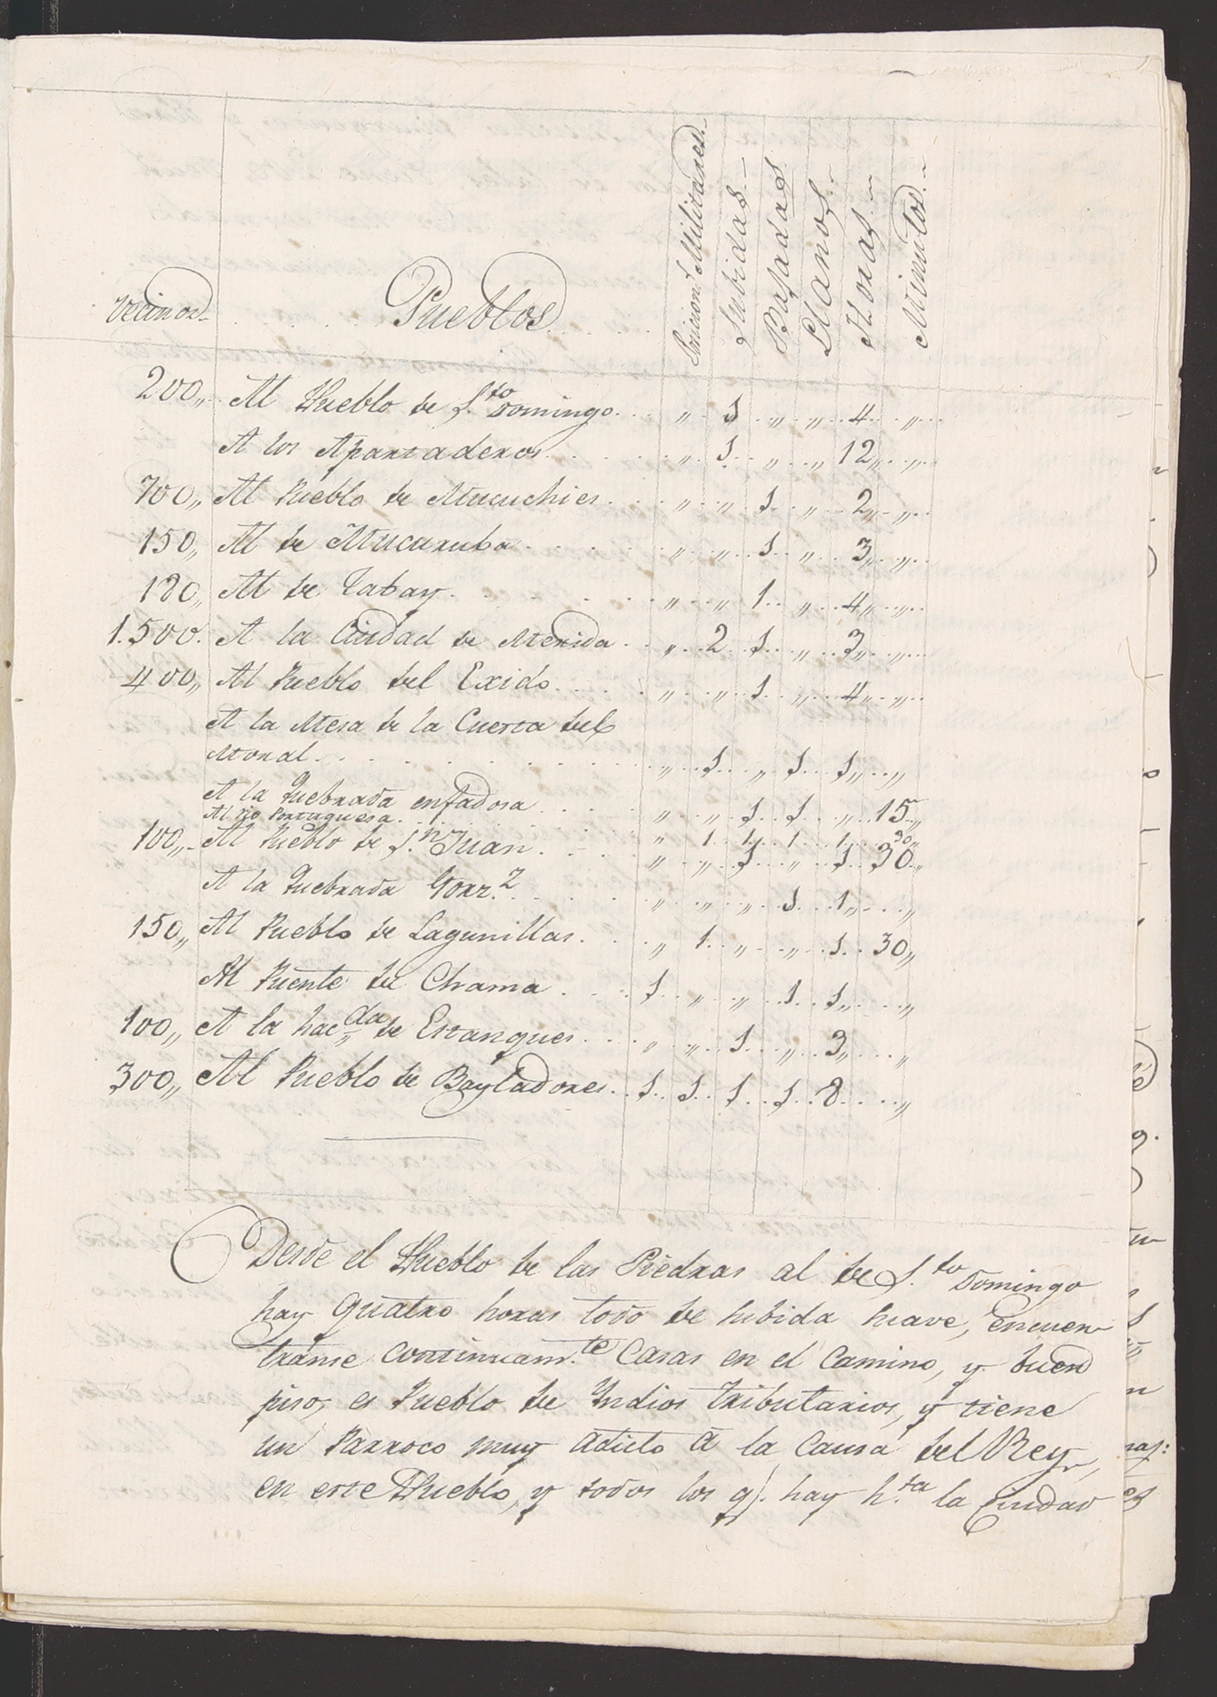 Vecinos. Pueblos Posicion.s Militares. Subidas. Bajadas. Llanos. Horas. Minutos.
200,, Al Pueblo de S.to Domingo. ,, 1 ,, ,, 4 ,,
A los Apartaderos ,, 1 ,, ,, 12,, ,,
700,, Al Pueblo de Mucuchies ,, ,, 1 ,, 2,, ,,
150,, Al de Mucuruba ,, ,, 1 ,, 3,, ,,
180,, Al de Tabay. ,, ,, 1 ,, 4,, ,,
1.500. A la Ciudad de Merida ,, 2 1 ,, 3,, ,,
400,, Al Pueblo del Exido ,, ,, 1 ,, 4,, ,,
A la Mesa de la Cuesta del
Moral ,, 1 ,, 1 1,, ,,
A la Quebrada enfadosa ,, ,, 1 1 ,, 15,,
Al Rio Portuguesa. ,, 1 1 1 1 30,,
100,, Al Pueblo de S.n Juan. ,, ,, 1 ,, 1 30,,
A la Quebrada Gonz.z ,, ,, ,, 1 1,, ,,
150,, Al Pueblo de Lagunillas. ,, 1 ,, ,, 1 30,,
Al Puente de Chama 1 ,, ,, 1 1,, ,,
100,, A la hac.da de Estanques ,, ,, 1 ,, 3,, ,,
300,, Al Pueblo de Bayladores 1 1 1 1 8 ,,
Desde el Pueblo de las Piedras al de S.to Domingo
hay quatro horas todo de subida suave, encuen-
transe continuam.te Casas en el Camino, y buen
piso, es Pueblo de Yndios tributarios, y tiene
un Parroco muy adicto a la Causa del Rey,
en este Pueblo, y todos los q.e hay h.ta la Ciudad